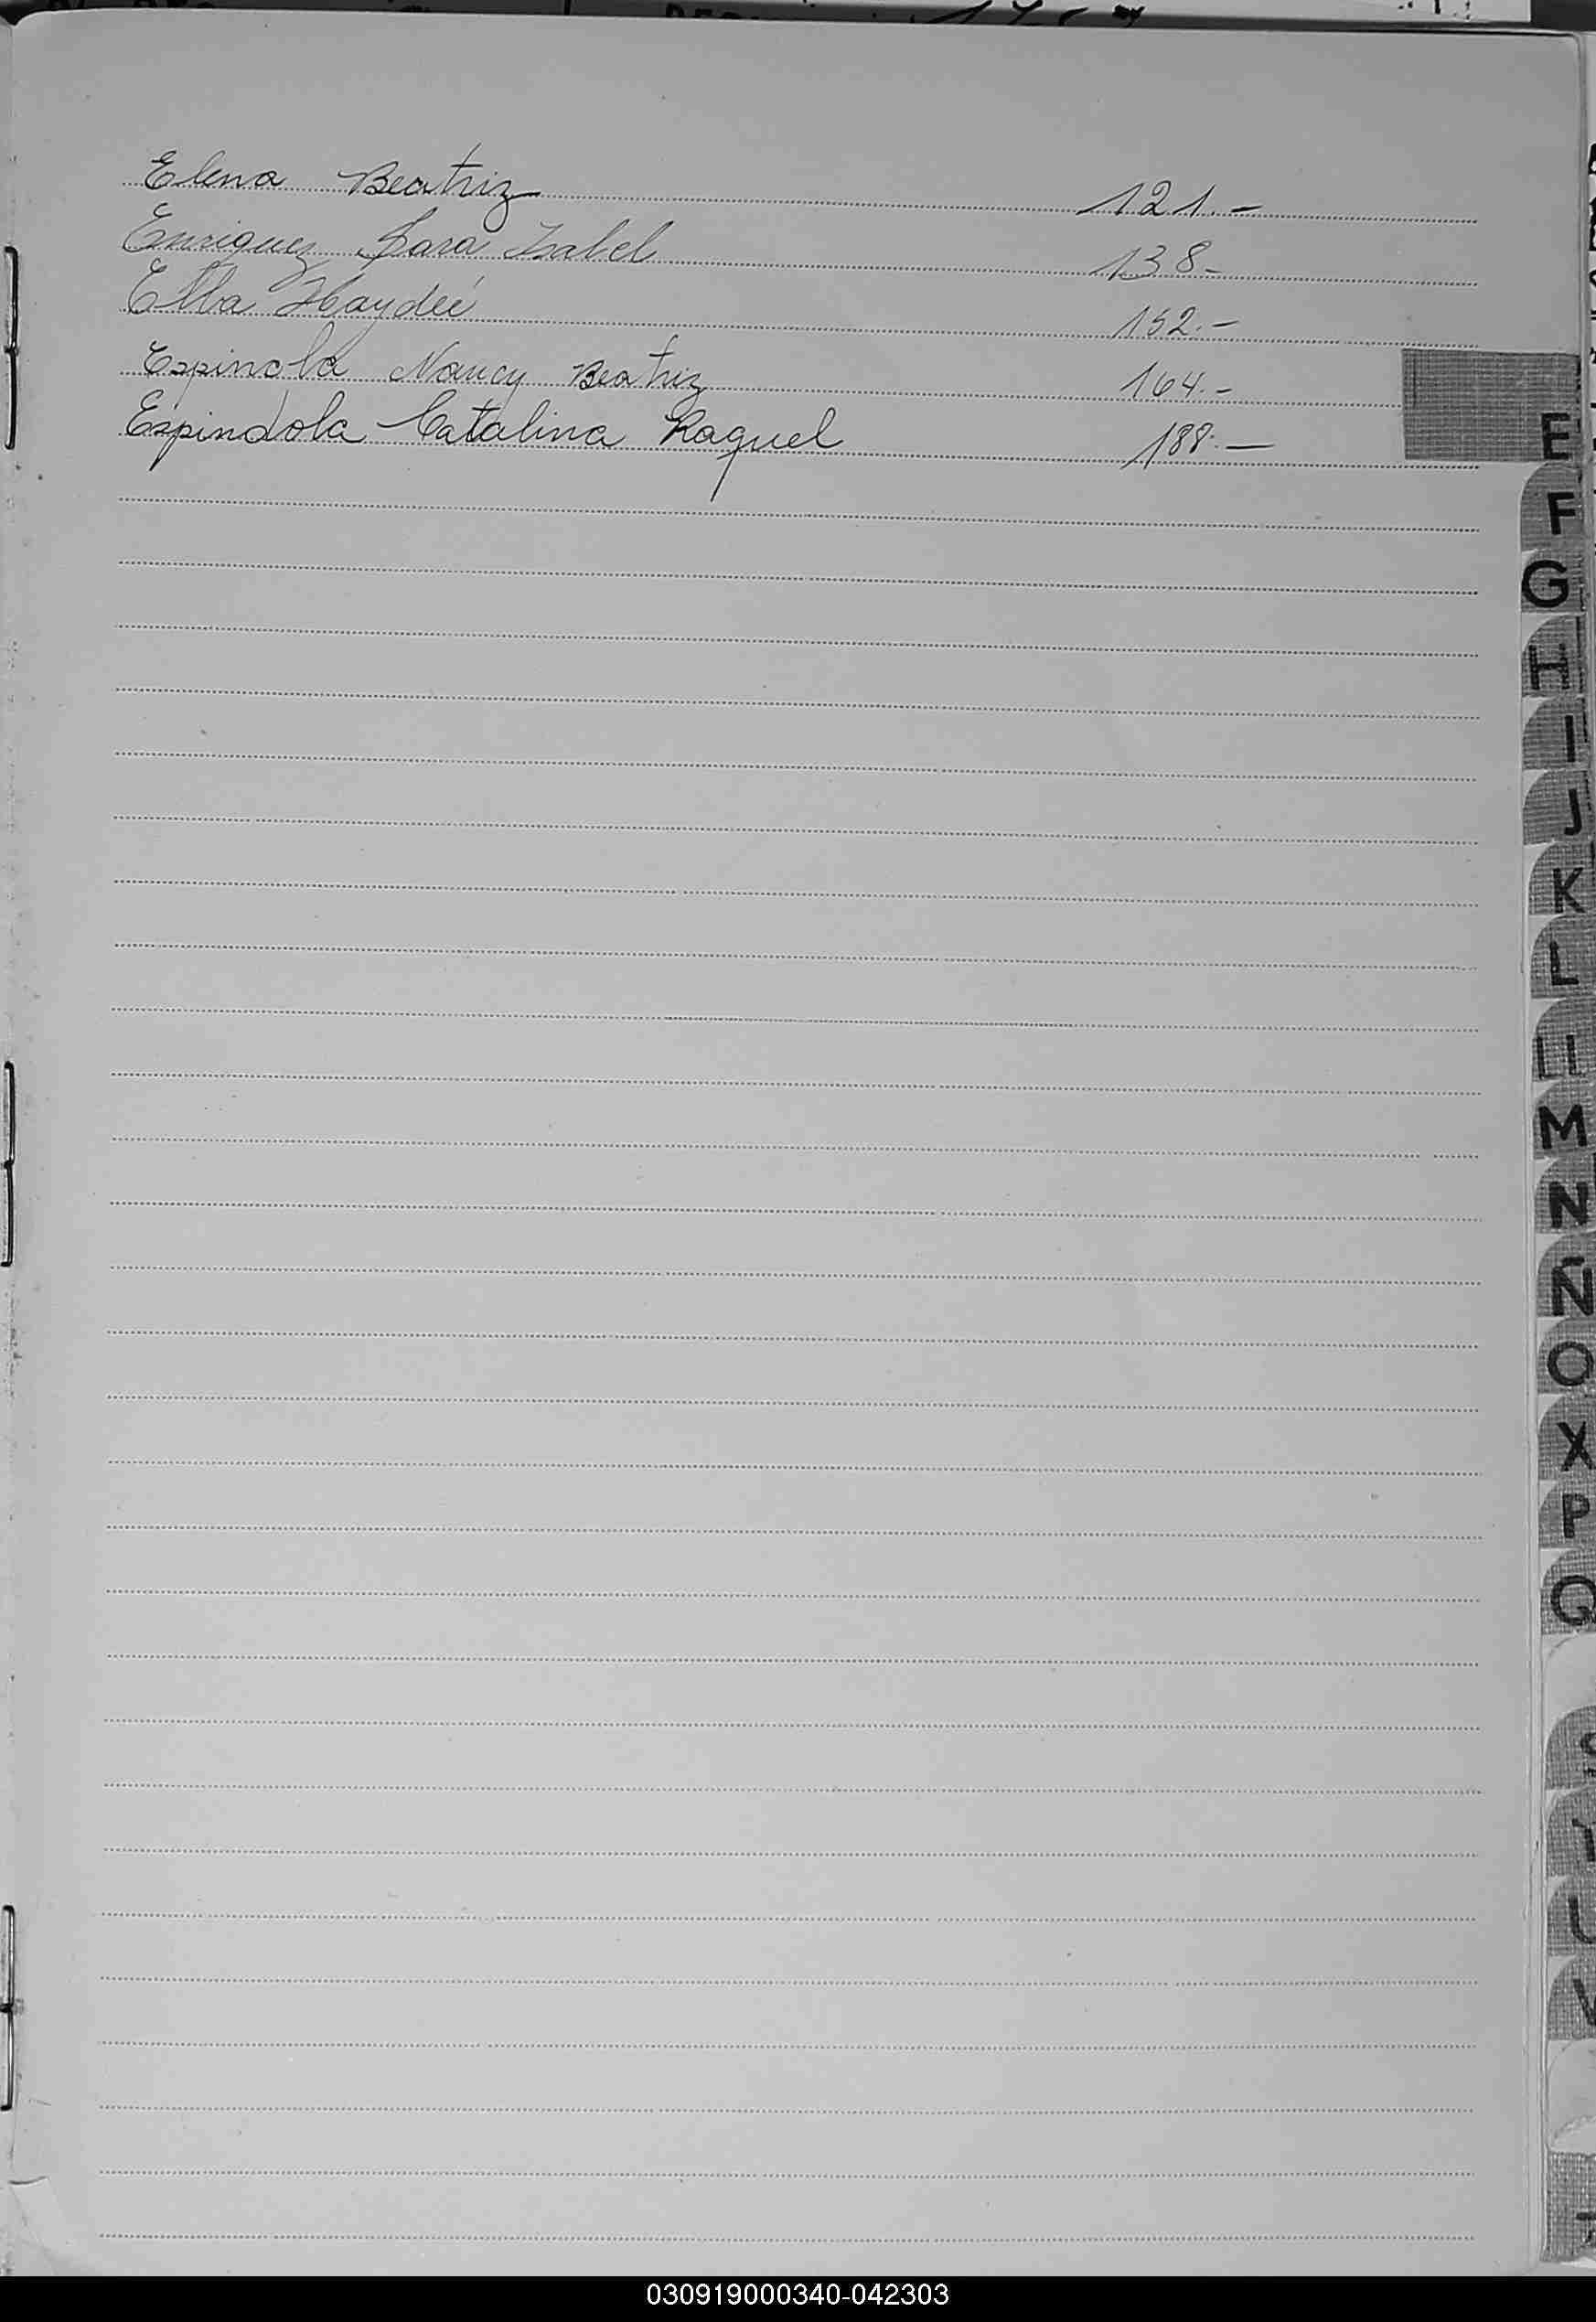 Elena Beatriz 121.-
Enriquez Sara Isabel 138-
Elba Haydeé 152.-
Espinola Nancy Beatriz 164.-
Espindola Catalina Raquel 188.-
E
F
G
H
I
J
K
L
Ll
M
N
Ñ
O
X
P
Q
S
T
U
V
030919000340-042303